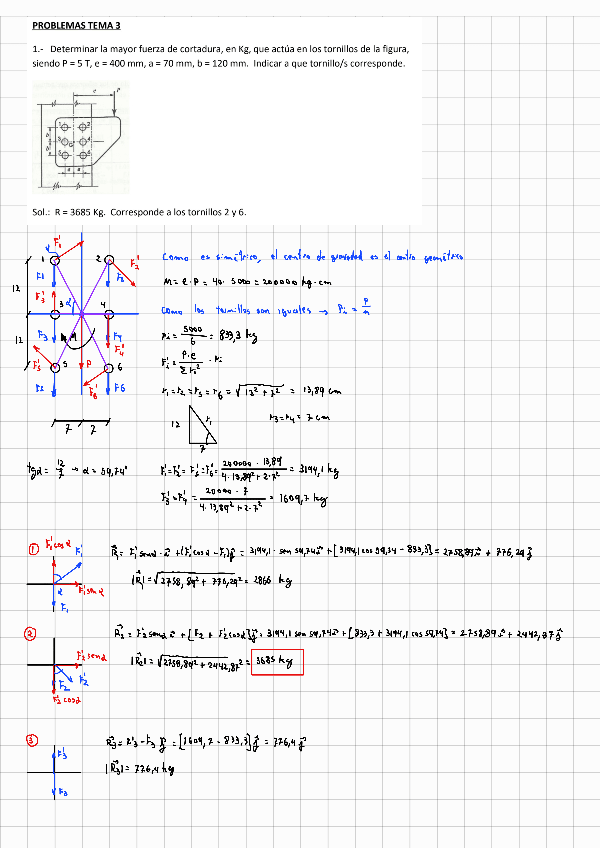 PROBLEMAS TEMA 3
1.- Determinar la mayor fuerza de cortadura, en Kg, que actúa en los tornillos de la figura,
siendo P = 5 T, e = 400 mm, a = 70 mm, b = 120 mm. Indicar a que tornillo/s corresponde.
Sol.: R = 3685 Kg. Corresponde a los tornillos 2 y 6.
Como es simétrico, el centro de gravedad es el centro geométrico
M = e · P = 40 · 5000 = 200000 kg · cm
Como los tornillos son iguales → Pi = P/n
Pi = 5000/6 = 833,3 kg
Fi' = P·e/Σri² · ri
r1 = r2 = r5 = r6 = √(12² + 7²) = 13,89 cm
r3 = r4 = 7 cm
12 r1
7
12
12
7 7
tgα = 12/7 → α = 59,74°
F1' = F2' = F5' = F6' = 200000 · 13,89 / 4·13,89² + 2·7² = 3194,1 kg
F3' = F4' = 20000 · 7 / 4·13,89² + 2·7² = 1609,7 kg
1
F1' cos α F1'
α F1' sen α
F1
R1 = F1' senα · i + (F1' cos α - F1) j = 3194,1 · sen 59,74 i + [3194,1 cos 59,74 - 833,3] j = 2758,89 i + 776,29 j
|R1| = √(2758,89² + 776,29²) = 2866 kg
2
F2' sen α
F2 F2'
F2' cos α
R2 = F2' sen α i + [F2 + F2' cos α] j = 3194,1 sen 59,74 i + [833,3 + 3194,1 cos 59,74] = 2758,89 i + 2442,87 j
|R2| = √(2758,89² + 2442,87²) = 3685 kg
3
F3'
F3
R3 = F'3 - F3 j = [1609,7 - 833,3] j = 776,4 j
|R3| = 776,4 kg